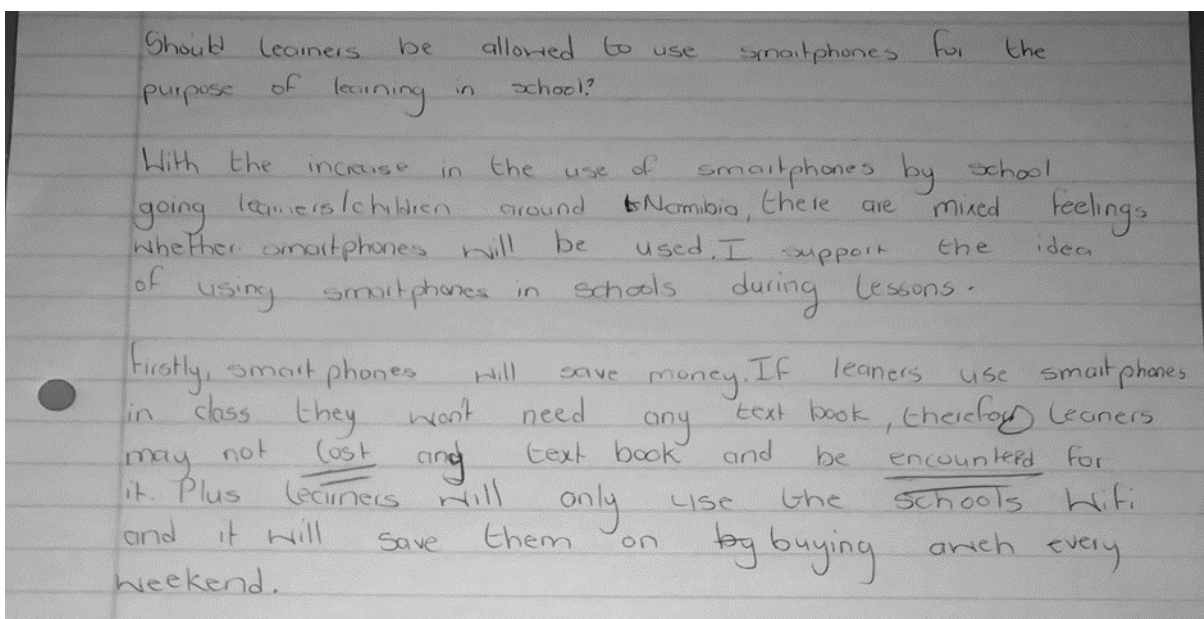 Should learners be allowed to use smartphones for the
purpose of learning in school?
With the increase in the use of smartphones by school
going learners/children around Namibia, there are mixed feelings
whether smartphones will be used. I support the idea
of using smartphones in schools during lessons.
Firstly, smart phones will save money. If leaners use smartphones
in class they won't need any text book, therefor leaners
may not lost any text book and be encounterd for
it. Plus learners will only use the schools Wifi
and it will save them on buying aweh every
weekend.